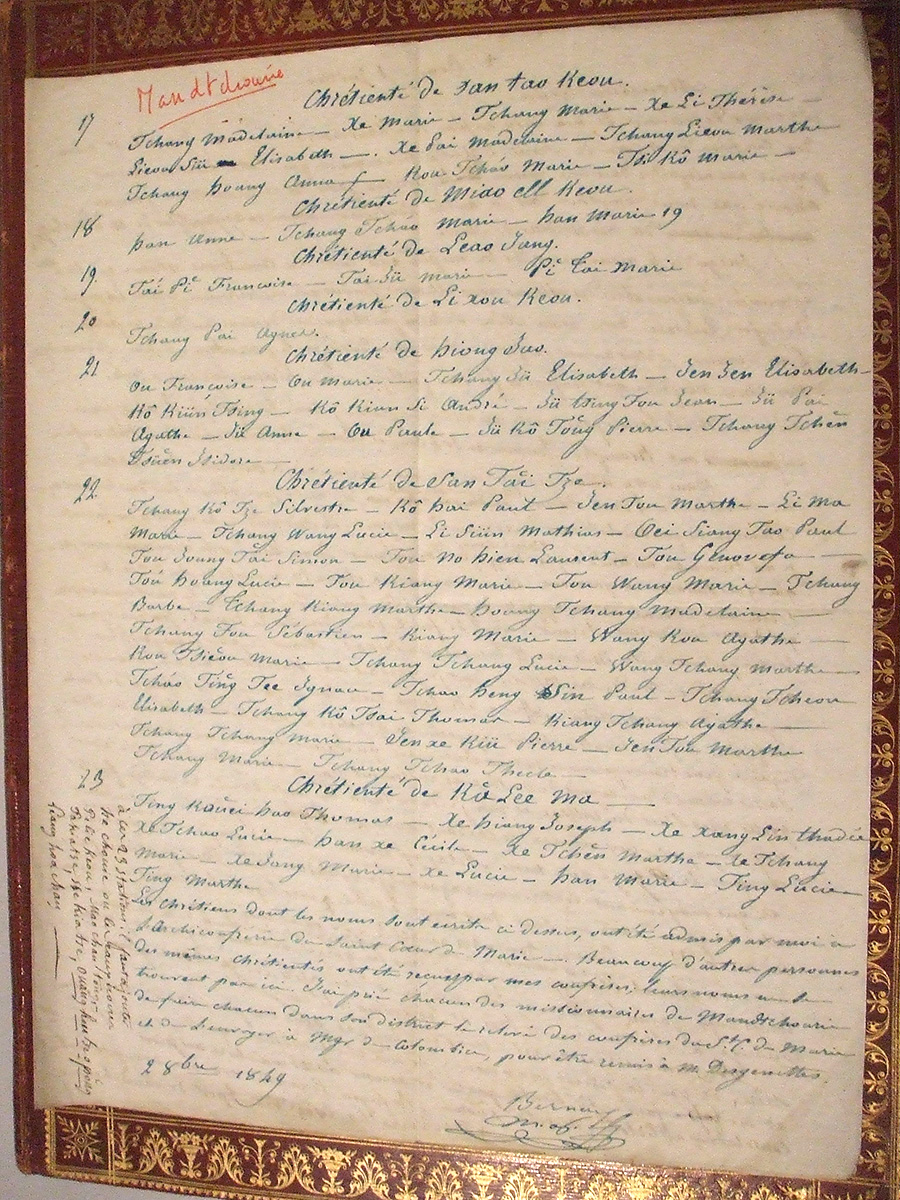 Mandtchourie
Chrétienté de San tao Keou.
17
Tchang Madelaine — Xe Marie — Tchang Marie — Xe Li Thérèse —
Lieou Siü — Elisabeth —. Xe Pai Madelaine — Tchang Lieou Marthe
Tchang hoang Anna — Kou Tcháo Marie — Tsi Kô Marie —
Chrétienté de Miao ell Keou.
18
han Anne — Tchang Tcháo Marie — han Marie 19
Chrétienté de Leao Iang.
19.
Tái Pĭ Francoise — Tái Iü Marie — Pĭ Tai Marie
Chrétienté de Li xou Keou.
20
Tchang Pai Agnès.
Chrétienté de hiong Iao.
21
Ou Francoise — Ou Marie — Tchang Iü Elisabeth — Ien Ien Elisabeth —
Kô Kiün Tsing — Kô Kian Si André — Iü tsing Tou Jean — Iü Pai
Agathe — Iü Anne — Ou Paule — Iü Kô Tŏng Pierre — Tchang Tchĕn
Tsüen Isidore —
Chrétienté de San Tăi Tze.
22
Tchang Kô Tze Silvestre — Kô hai Paul — Ien Tou Marthe — Li Ma
Marie — Tchang Wang Lucie — Li Siün Mathias — Oei Siang Tao Paul
Tou Ioung Tăi Simon — Tou No hien Laurent — Tou Genovefa —
Tou hoang Lucie — Tou Kiang Marie — Tou Wang Marie — Tchang
Barbe — Tchang Kiang Marthe — hoang Tchang Madelaine —
Tchang Tou Sébastien — Kiang Marie — Wang Kou Agathe —
Kou Tsiĕou Marie — Tchang Tchang Lucie — Wang Tchang Marthe —
Tcháo Tĭng Tee Ignace — Tchao heng Sin Paul — Tchang Tcheou
Elisabeth — Tchang Kô Tsai Thomas — Kiang Tchang Agathe —
Tchang Tchang Marie — Ien xe Kiü Pierre — Ien Tou Marthe
Tchang Marie — Tchang Tchao Thecle —
Chrétienté de Kă Lee Ma —
23
Ting Kouei hao Thomas — Xe hiang Joseph — Xe xang Lin thadée
Xe Tchao Lucie — han xe Cécile — Xe Tchĕn Marthe — Xe Tchang
Marie — Xe Iang Marie — Xe Lucie — han Marie — Ting Lucie —
Ting Marthe
Les chrétiens dont les noms sont ecrits ci dessus, ont été admis par moi à
l'Archiconfrérie du Saint Cœur de Marie —. Beaucoup d'autres personnes
des mêmes chrétientés ont été reçues par mes confrères; leurs noms ne se
trouvent pas ici. J'ai prié chacun des missionnaires de Mandtchourie
de faire chacun dans son district le relevé des confrères du St. C. de Marie
et de l'envoyer à Mgr de Colombie, pour être remis à M. Desgenettes.
2 8bre 1849
à ces 23 stations il faut ajouter